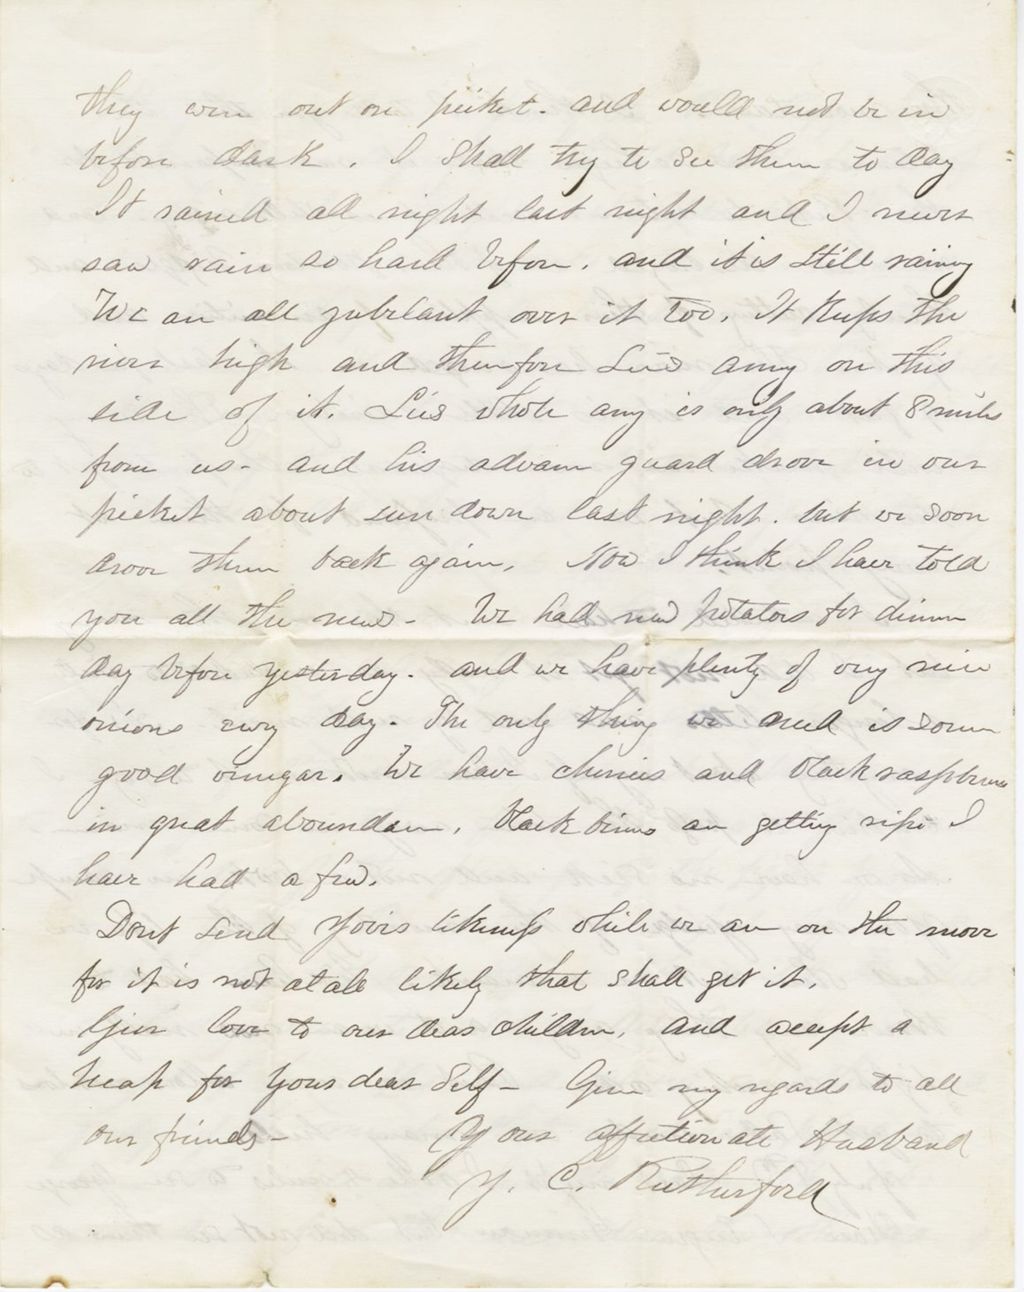 they were out on picket. and would not be in
before dark. I shall try to see them to day
It rained all night last night and I never
saw rain so hard before. and it is still raining
We are all jubilant over it too. It keeps the
river high and therefore Lee's army on this
side of it. Lee's whole army is only about 8 miles
from us - and his advance guard drove in our
picket about sun down last night. but we soon
drove them back again. Now I think I have told
you all the news - We had new potatoes for dinner
day before yesterday. and we have plenty of very nice
onions every day. The only thing we need is some
good vinegar. We have cherries and black raspberries
in great aboundance. Blackberries are getting ripe I
have had a few.
Dont send likeness while we are on the move
for it is not atall likely that shall get it.
Give love to our dear children. and accept a
heap for your dear self - Give my regards to all
our friends - Your affectionate Husband
J. C. Rutherford